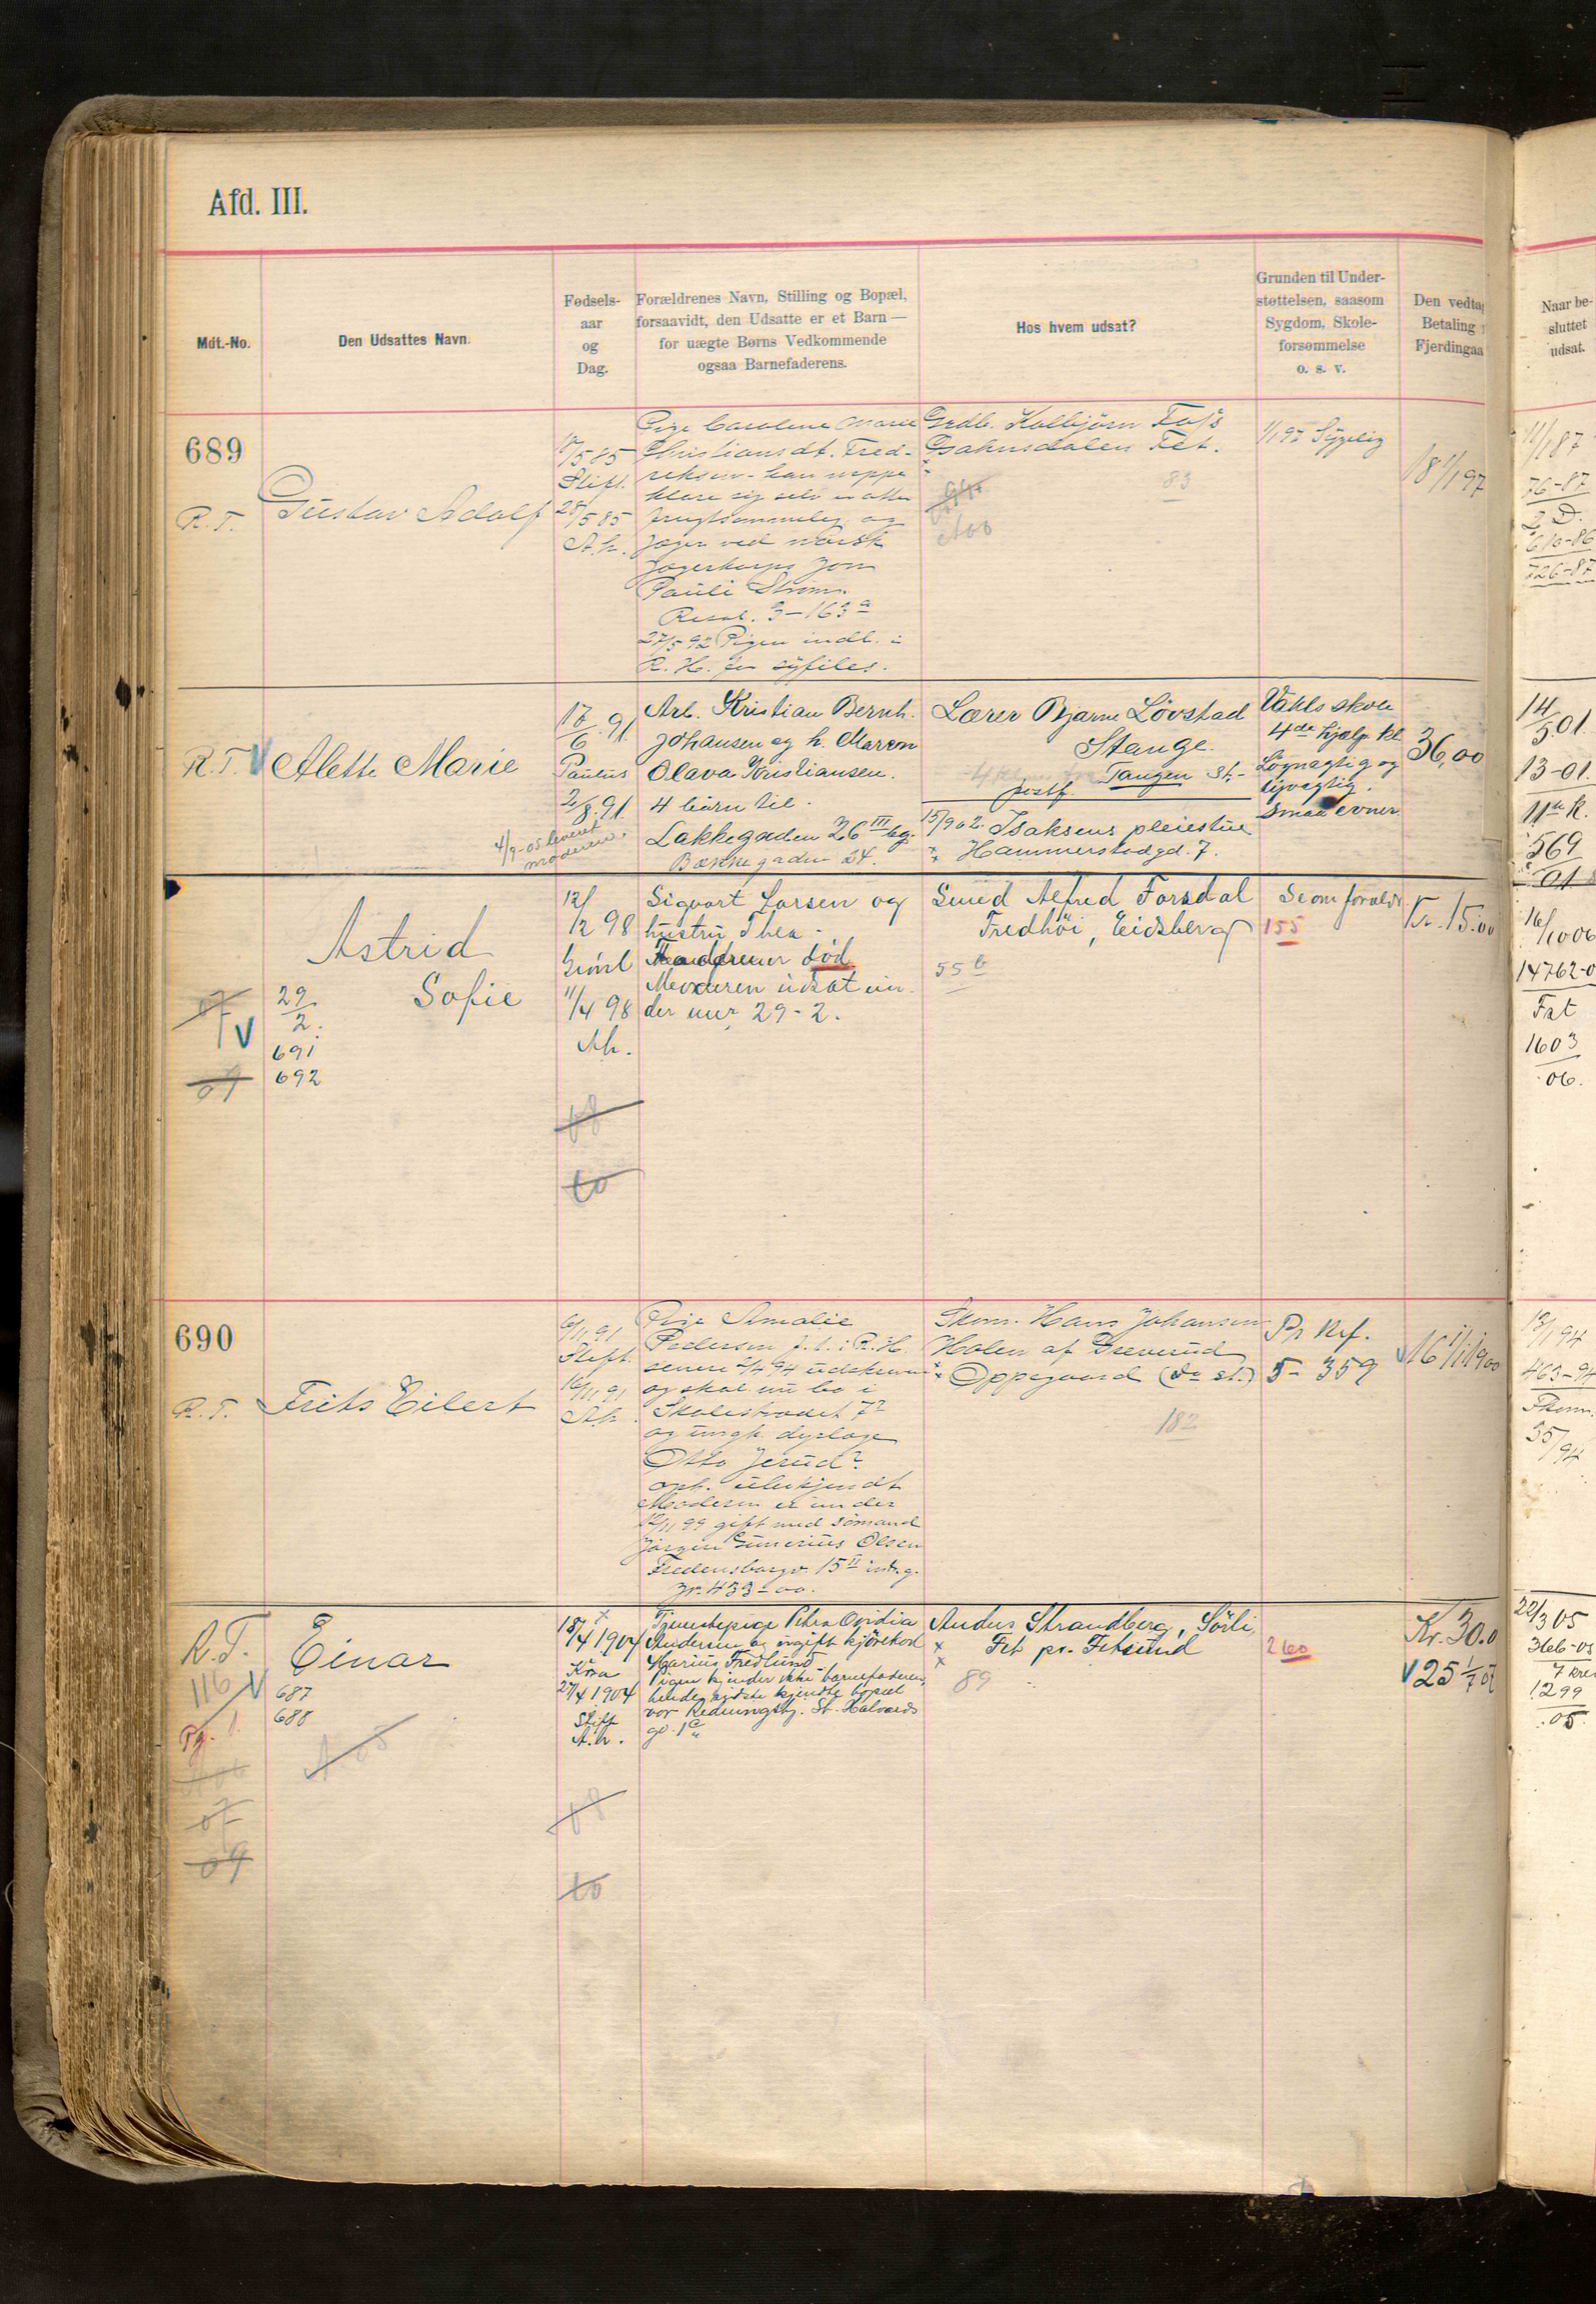 Afd. III.
Mdt.-No.
Den Udsattes Navn.
Fødsels-
aar
og
Dag.
Forældrenes Navn, Stilling og Bopæl,
forsaavidt, den Udsatte er et Barn —
for uægte Børns Vedkommende
ogsaa Barnefaderens.
Hos hvem udsat?
Grunden til Under-
støttelsen, saasom
Sygdom, Skole-
forsømmelse
o. s. v.
Den vedta
Betaling
Fjerdingaa
Naar be-
sluttet
udsat.
689
R. T.
Gustav Adolf
/5 85
Stift.
28/5 85
A.k.
Pige Caroline Marie
Christiansdt. Fred-
riksen - kan neppe
klare sig selv
og
Jæger ved norsk
Jægerkorps Jon
Pauli Strøm.
Resol. 3-163 a
27/5 92 Pigen indl. i
R. H. for syfiles.
Gedb. Kolbjörn Fos's
Isakusdalen Fet.
83
1/1 92 Sygelig
18 1/1 97
11/1 87
76-87
2 D.
610-86
726-87
R.T. V Alette Marie
17/6 91
Paulus
2/8. 91
4/9-05 leveret
moderen.
Arb. Kristian Bernh.
Johansen og h. Maren
Olava Kristiansen.
4 børn til.
Lakkegaden 26 III bg.
Bækkegaden 24.
Lærer Bjarne Lövstad
Stange.
Tangen st.-
postf.
15/9 02. Isaksens pleiestue
Hammerstadgd. 7.
Vahls skole
4de hjælp kl
Løgnagtig og
tyvagtig.
Smaa evner
36,00
14/5 01.
13-01.
11te K.
569
01
Astrid
Sofie
29
2.
691
692
07 V
09
12/
12 98
Grönl
11/4 98
Ak.
08
10
Sigvart Larsen og
hustru Thea -
Faderen død
Moderen udsat un-
der nur. 29-2.
Smed Alfred Forsdal
Fredhöi, Eidsberg
55 b
Se om forældr
155
Kr. 15.00
16/10 06
14762-0
Fat
1603
06.
690
R. T.
Frits Eilert
6/11 91
Stift.
16/11 91
A.k.
Pige Amalie
Pedersen f. t. i R. H.
senere 2/4 94 udskreven
og skal nu bo i
Skolestrædet 7 2
og ungk. dyrlæge
Otto Jerud?
oph. ubekjendt
Moderen er under
12/11 99 gift med sömand
Jørgen Gunerius Olsen
Fredensborgv. 15 II indg.
Jr. 433-00.
Skom. Hans Johansen
Holen af Dreverud
Oppegaard (Do st.)
182
Pr Ref.
5-359
V 16 1/1 1900
12/1 94
463-94
Fkom.
35/94
R.T.
116 V
Pg. 1.
07
09
Einar
687
688
A 05
18/4 1904
Kra
27/4 1904
Stift
A.k.
08
10
Tjenestepige Petra Ovidia
Andersen og ungift kjörekar
Marius Fredlund
Pigen kjender ikke barnefaderen,
hendes sidste kjendte bopæl
var Redningshj. St. Halvards
gd. 1 c
Anders Strandberg, Sörli,
Fet pr. Fetsund
89
260
Kr. 30.0
V 25 1/7 07
22/3 05
366-05
7 kre
1299
05